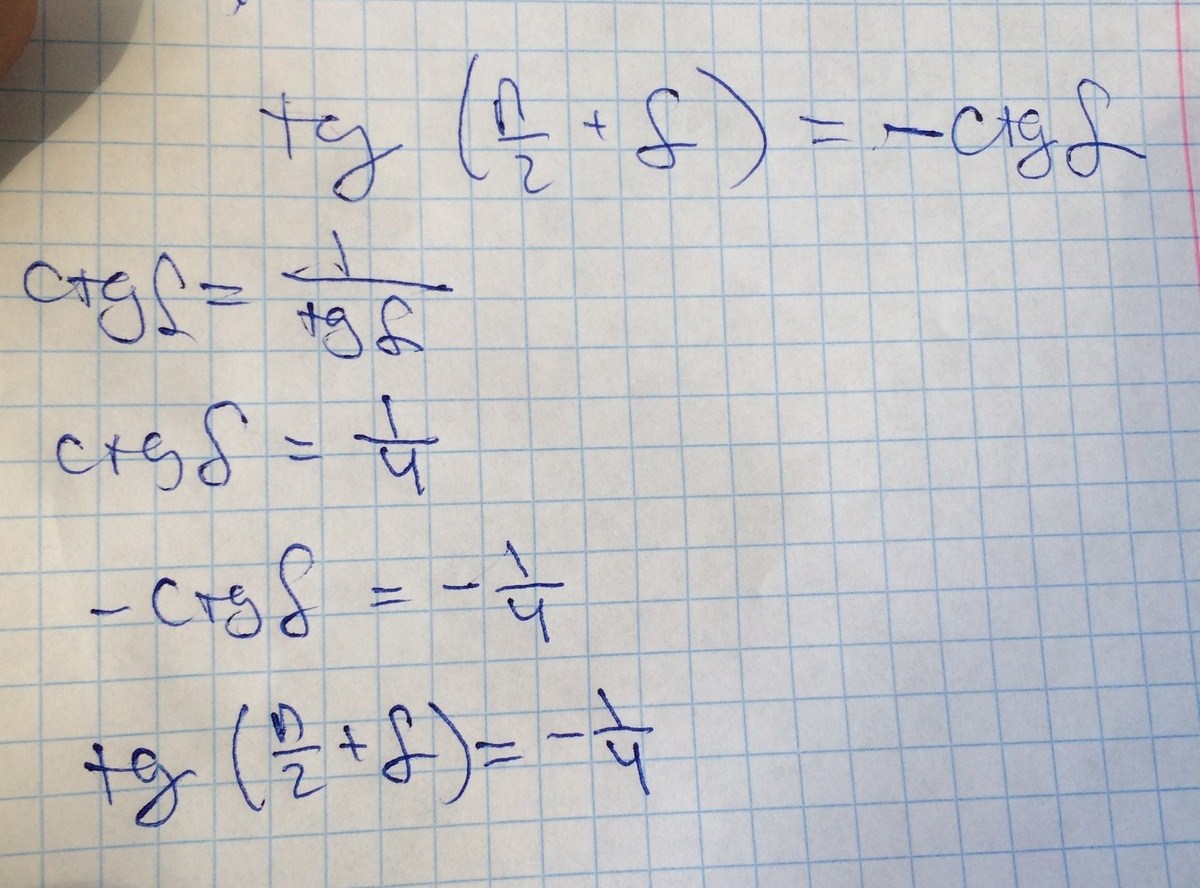 tg (π/2 + β) = -ctg β
ctg β = 1/tg β
ctg β = 1/4
- ctg β = - 1/4
tg (π/2 + β) = - 1/4